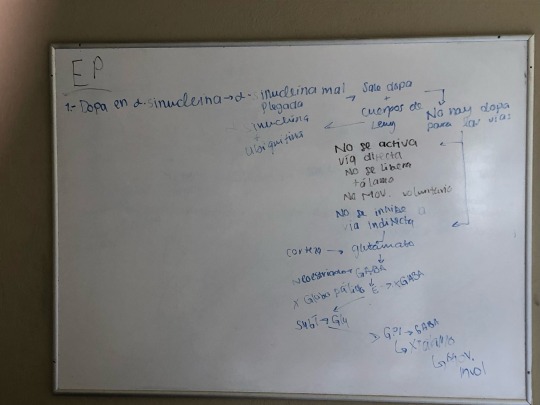 EP
1.- Dopa en α-sinucleina → α-sinucleina mal
Plegada
sinucleina
+
Ubiquitina
Solo dopa
+
cuerpos de
Lewy
No hay dopa
para las vías:
No se activa
vía directa
No se libera
tálamo
No Mov. voluntario
No se inhibe a
vía indirecta
corteza → glutamato
Neoestriado → GABA
X Globo pálido E → XGABA
SubT → Glu
GPI → GABA
X Tálamo
Mov.
invol